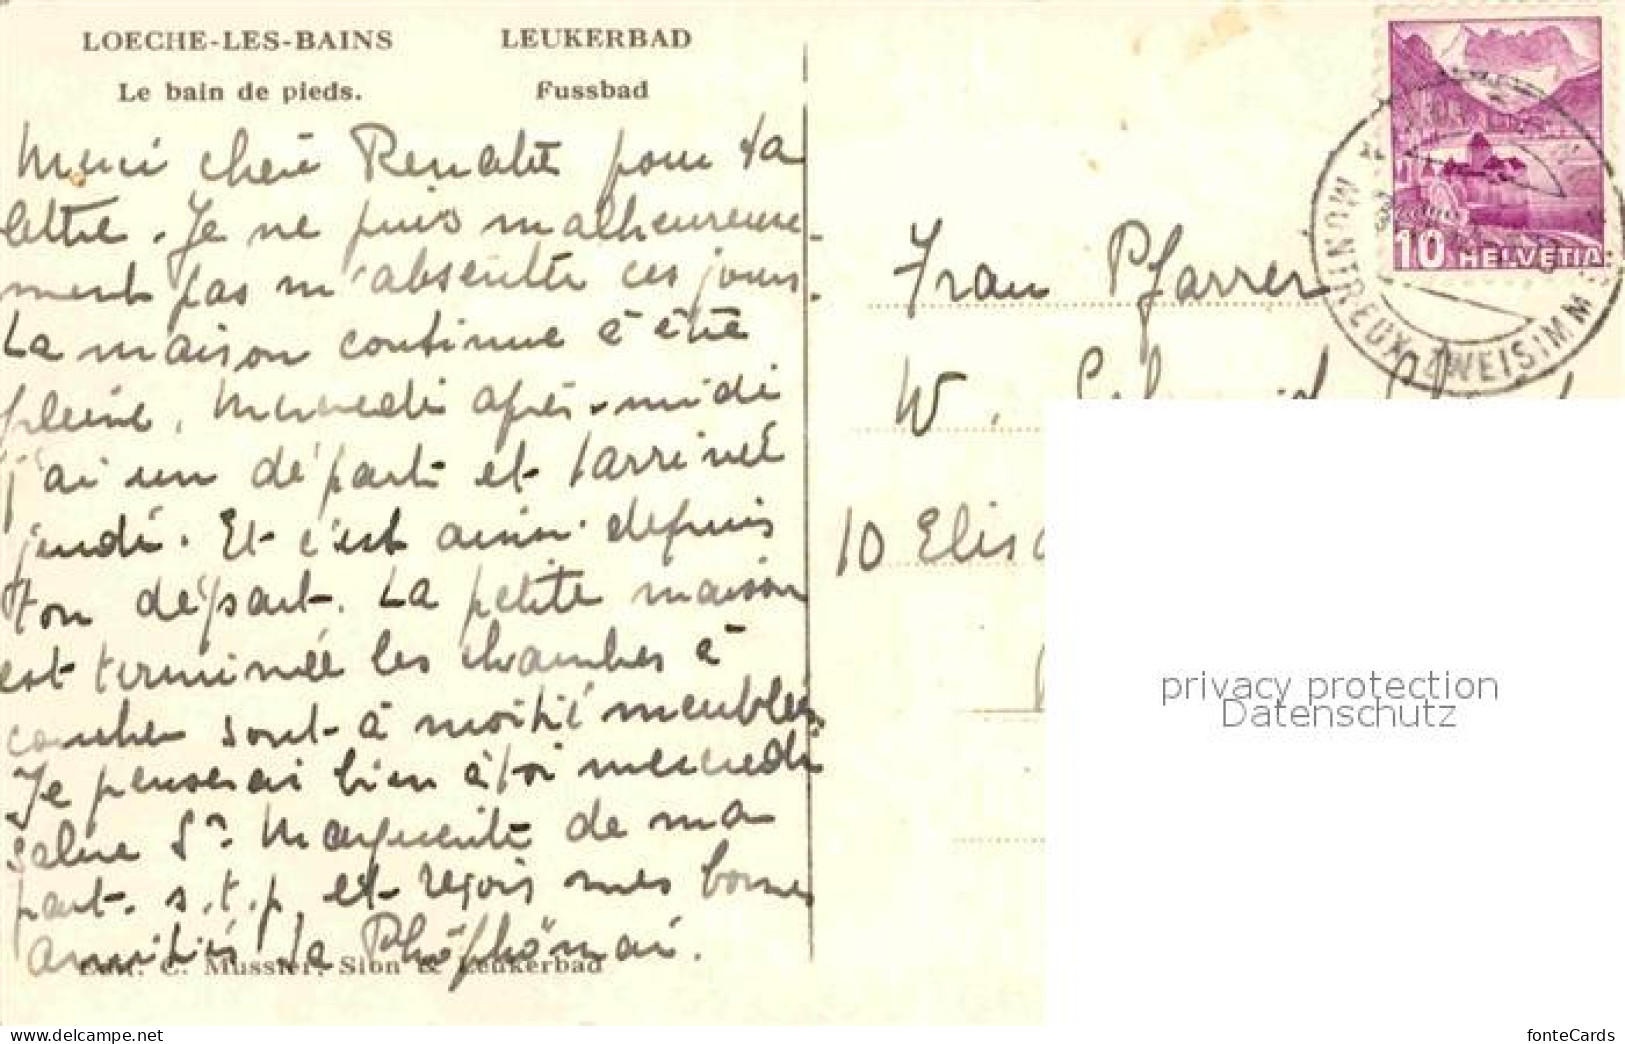 LOECHE-LES-BAINS LEUKERBAD
Le bain de pieds. Fussbad
Merci chère Renate pour ta
lettre. Je ne puis malheureuse-
ment pas m'absenter ces jours.
La maison continue à être
pleine. Mercredi après-midi
j'ai un départ et l'arrivée
jeudi. Et c'est ainsi depuis
ton départ. La petite maison
est terminée les chambres à
coucher sont à moitié meublées.
Je penserai bien à toi mercredi
salue Sr. Marguerite de ma
part. s.t.p. et reçois mes bonnes
amitiés ta
Edit. C. Mussler, Sion & Leukerbad
Frau Pfarrer
W.
10
HELVETIA 10
MONTREUX-ZWEISIMM
privacy protection
Datenschutz
www.delcampe.net
fonteCards